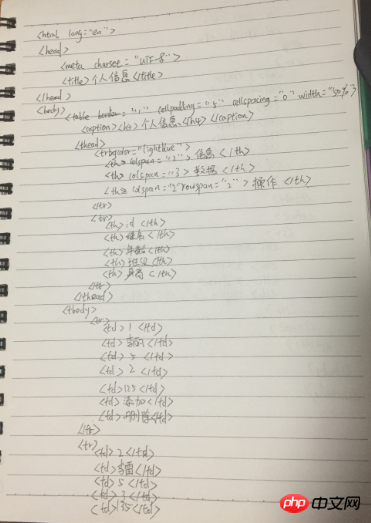 <html lang="en">
<head>
<meta charset="UTF-8">
<title>个人信息</title>
</head>
<body>
<table border="1" cellpadding="5" cellspacing="0" width="50%">
<caption><h4>个人信息</h4></caption>
<thead>
<tr bgcolor="lightblue">
<th colspan="2">信息</th>
<th colspan="3>数据</th>
<th colspan="2"rowspan="2">操作</th>
</tr>
<tr>
<th>id</th>
<th>姓名</th>
<th>年龄</th>
<th></th>
<th>身高</th>
</tr>
</thead>
<tbody>
<tr>
<td>1</td>
<td></td>
<td>5</td>
<td>2</td>
<td>125</td>
<td>添加</td>
<td>删除</td>
</tr>
<tr>
<td>2</td>
<td></td>
<td>5</td>
<td></td>
<td></td>
php 中文网